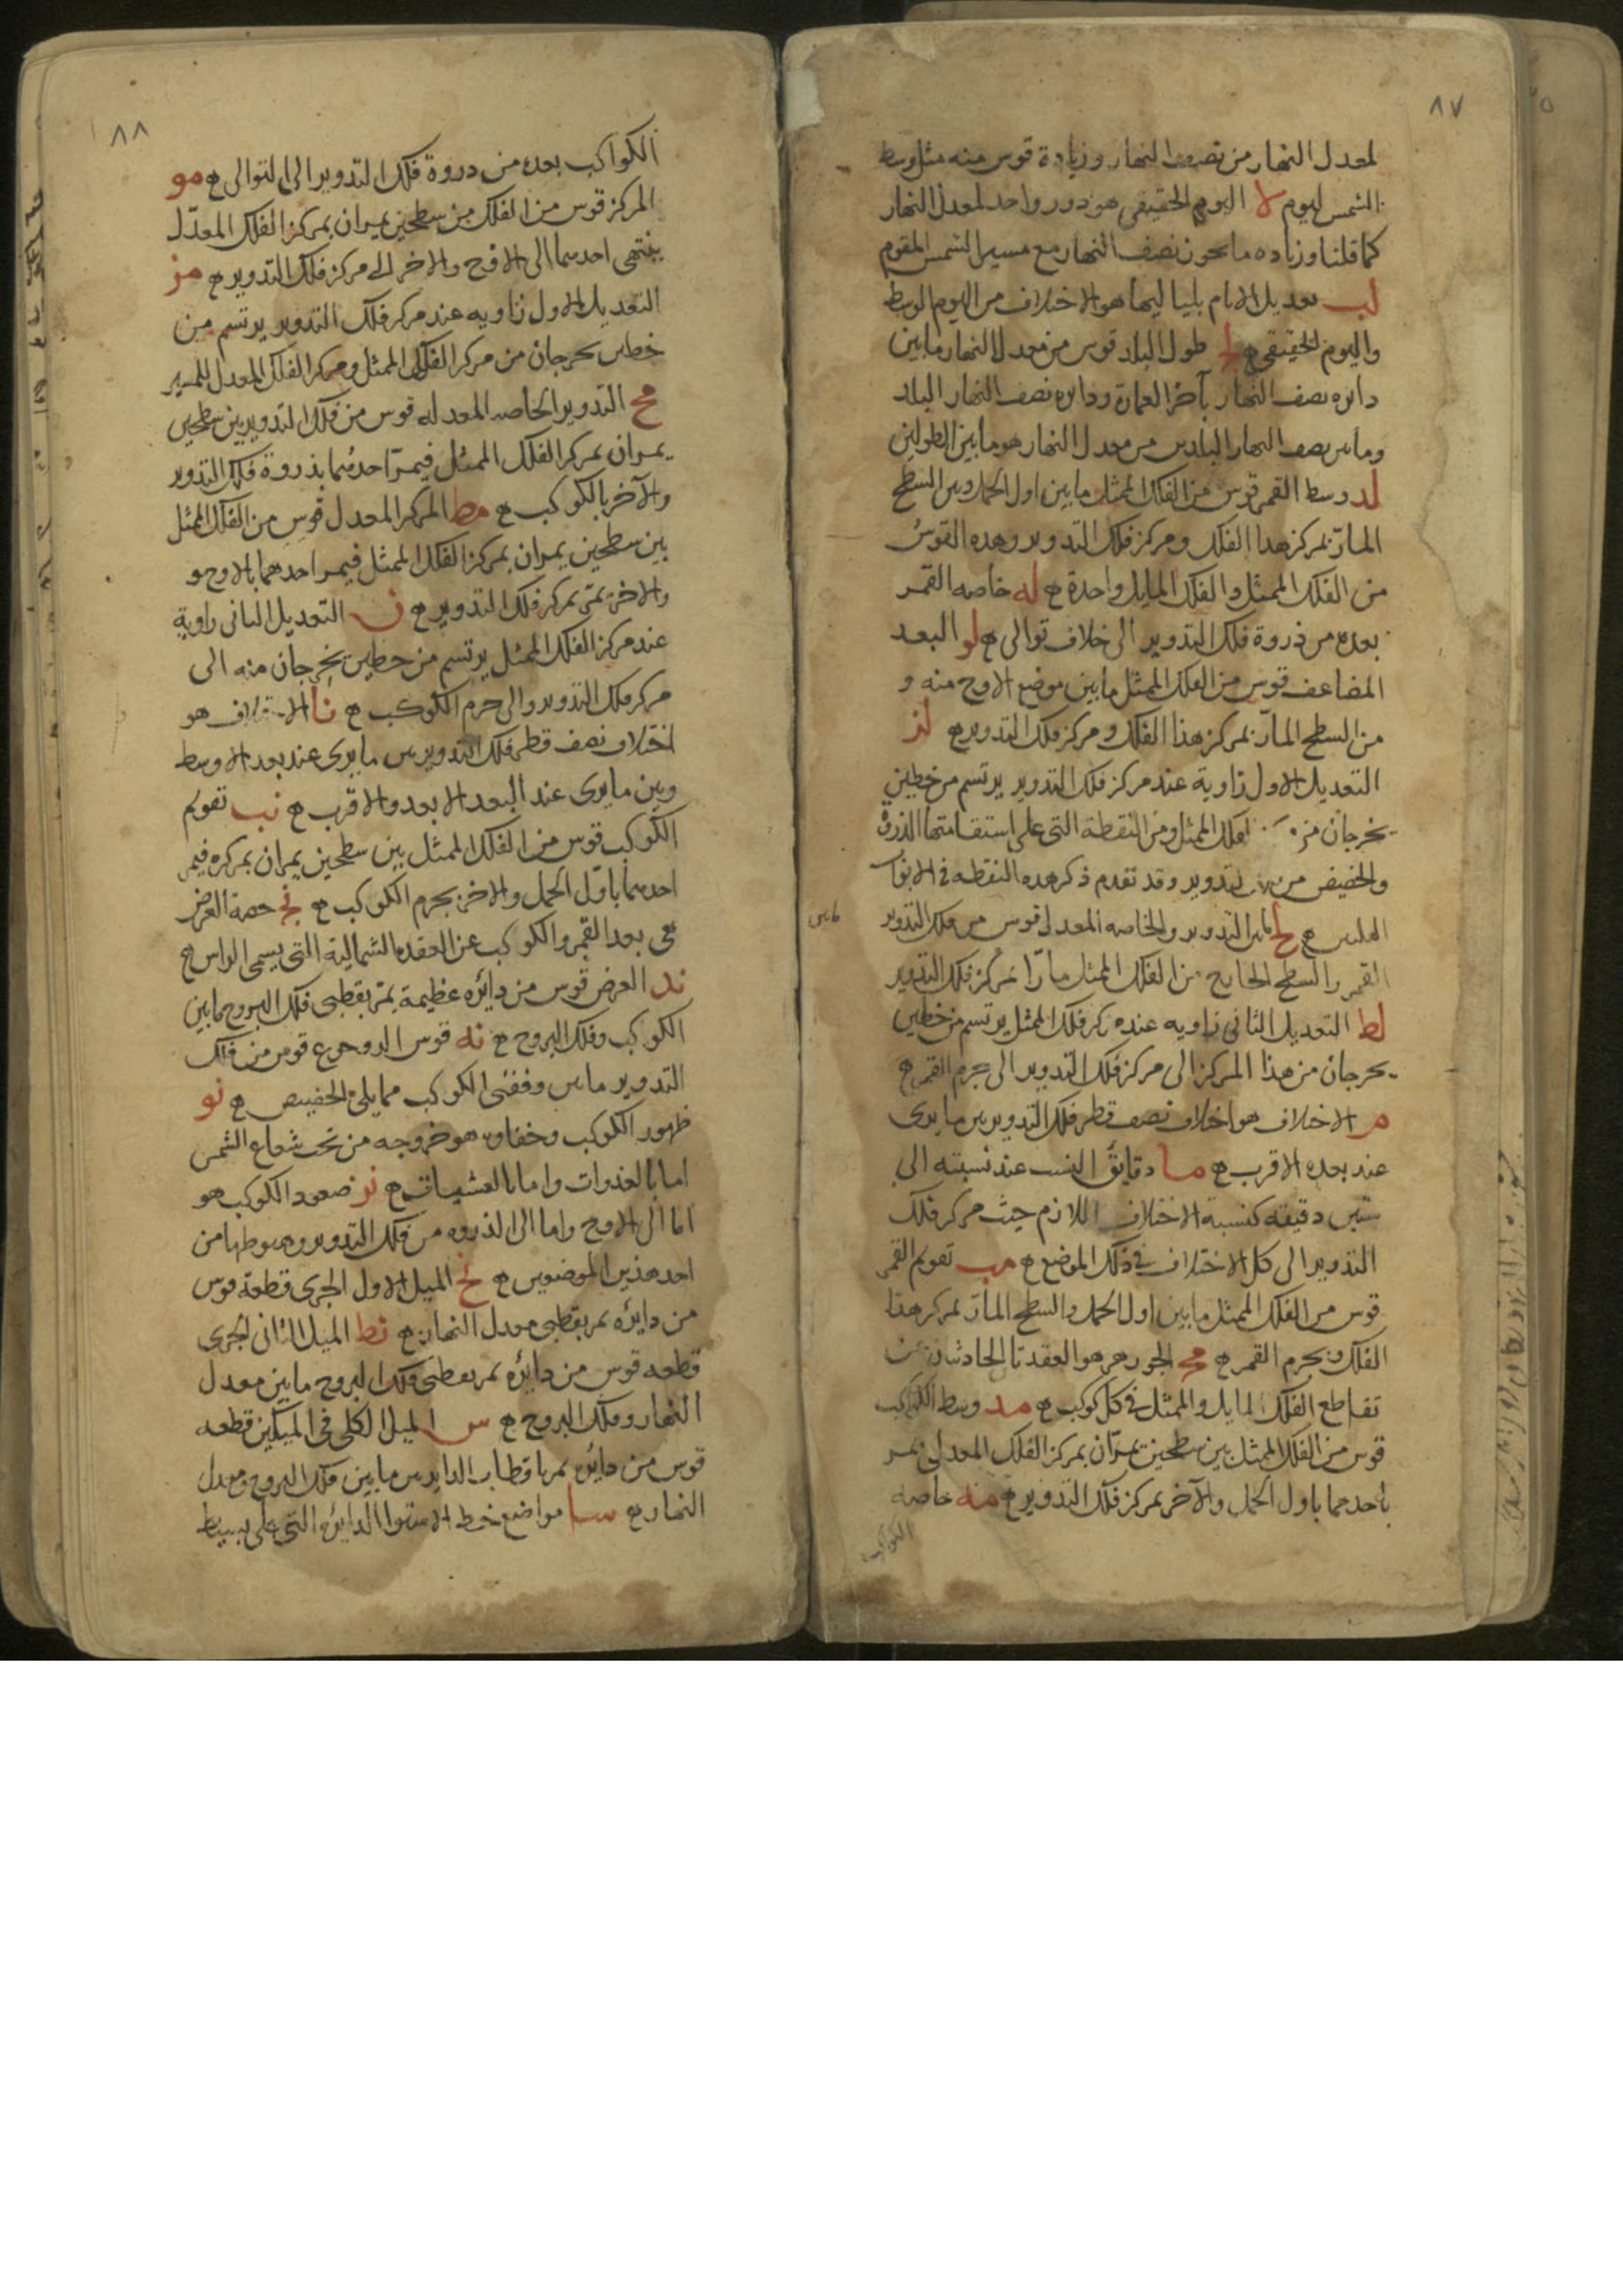 ٨٧
لمعدل النهار من نصف النهار وزيادة قوس منه مثل وسط
الشمس ليوم لا اليوم الحقيقي هو دور واحد لمعدل النهار
كما قلنا وزياده ما يحون نصف النهار مع مسير الشمس المقوم
لب تعديل الايام بلياليها هو الاختلاف من اليوم الوسط
واليوم الحقيقي ه لج طول البلد قوس من معدل النهار ما بين
دايره نصف النهار بآخر العمارة ودايره نصف النهار البلد
وما بين نصف النهار البلدين من معدل النهار هو ما بين الطولين
لد وسط القمر قوس من الفلك الممثل ما بين اول الحمل وبين السطح
المارّ بمركز هدا الفلك ومركز فلك التدوير وهده القوسُ
من الفلك الممثل والفلك المايل واحدة ه له خاصه القمر
بعده من ذروة فلك التدوير الى خلاف توالى ه لو البعد
المضاعف قوس من الفلك الممثل ما بين موضع الاوج منه و
من السطح المارّ بمركز هذا الفلك ومركز فلك التدوير ه لز
التعديل الاول زاوية عند مركز فلك التدوير يرتسم من خطين
يخرجان من فلك الممثل ومن النقطة التى على استقامتها الذروة
والحضيض من التدوير وقد تقدم ذكر هده النقطه فى الابواب
ه لح التدوير والخاصه المعدل قوس من فلك التدوير
القمر والسطح الخارج من الفلك الممثل مارّا بمركز فلك التدوير
لط التعديل الثانى زاويه عند مركز فلك الممثل يرتسم من خطين
يخرجان من هذا المركز الى مركز فلك التدوير الى جرم القمر ه
م الاختلاف هو اختلاف نصف قطر فلك التدوير بين ما يرى
عند بعده الاقرب ه ما دقايق النسب عند نسبته الى
ستين دقيقه كنسبة الاختلاف اللازم حيث مركز فلك
التدوير الى كل الاختلاف في ذلك الموضع ه مب تقويم القمر
قوس من الفلك الممثل ما بين اول الحمل والسطح المارّ بمركز هذا
الفلك وبجرم القمر ه مج الجوزهر هو العقدتا الحادثتان من
تقاطع الفلك المايل والممثل فى كل كوكب ه مد وسط الكواكب
قوس من الفلك الممثل بين سطحين يمرّان بمركز الفلك المعدل يمر
باحدهما باول الحمل والآخر بمركز فلك التدوير ه مه خاصه
الكواكب
٨٨
الكواكب بعده من دروة فلك التدوير الى التوالى ه مو
المركز قوس من الفلك من سطحين يمران بمركز الفلك المعدّل
ينتهى احدهما الى الاوج والاخر الى مركز فلك التدوير ه مز
التعديل الاول زاويه عند مركز فلك التدوير يرتسم من
خطين يخرجان من مركز الفلك الممثل ومركز الفلك المعدل للمسير
مح التدوير الخاصه المعدله قوس من فلك التدوير بين سطحين
يمران بمركز الفلك الممثل فيمرّ احدهما بذروة فلك التدوير
والآخر بالكوكب ه مط المركز المعدل قوس من الفلك الممثل
بين سطحين يمران بمركز الفلك الممثل فيمر احدهما بالاوج و
والاخر يمر بمركز فلك التدوير ه ن التعديل الثانى زاوية
عند مركز الفلك الممثل يرتسم من خطين يخرجان منه الى
مركز فلك التدوير والى جرم الكوكب ه نا الاختلاف هو
اختلاف نصف قطر فلك التدوير بين ما يرى عند بعد الاوسط
وبين ما يرى عند البعد الابعد والاقرب ه نب تقويم
الكوكب قوس من الفلك الممثل بين سطحين يمران بمركزه فيمر
احدهما باوّل الحمل والاخر بجرم الكوكب ه نج حصة العرض
هى بعد القمر والكوكب عن العقده الشمالية التى يسمى الراس ه
ند العرض قوس من دائره عظيمة يمرّ بقطبى فلك البروج ما بين
الكوكب وفلك البروج ه نه قوس الرجوع قوس من فلك
التدوير ما بين وقفتى الكوكب مما يلى الحضيض ه نو
ظهور الكوكب وخفاوه هو خروجه من تحت شعاع الشمس
اما بالغدوات واما بالعشيات ه نز صعود الكوكب هو
اما الى الاوج واما الى الذروه من فلك التدوير وهبوطها من
احد هذين الموضعين ه نح الميل الاول الجزى قطعة قوس
من دايره يمر بقطبى معدل النهار ه نط الميل الثانى الجزى
قطعه قوس من دائره يمر بقطبى فلك البروج ما بين معدل
النهار وفلك البروج ه س الميل الكلى فى الميلين قطعه
قوس من دايره يمر باقطاب الدايرتين ما بين فلك البروج ومعدل
النهار ه سا مواضع خط الاستوا الدايره التى على بسيط